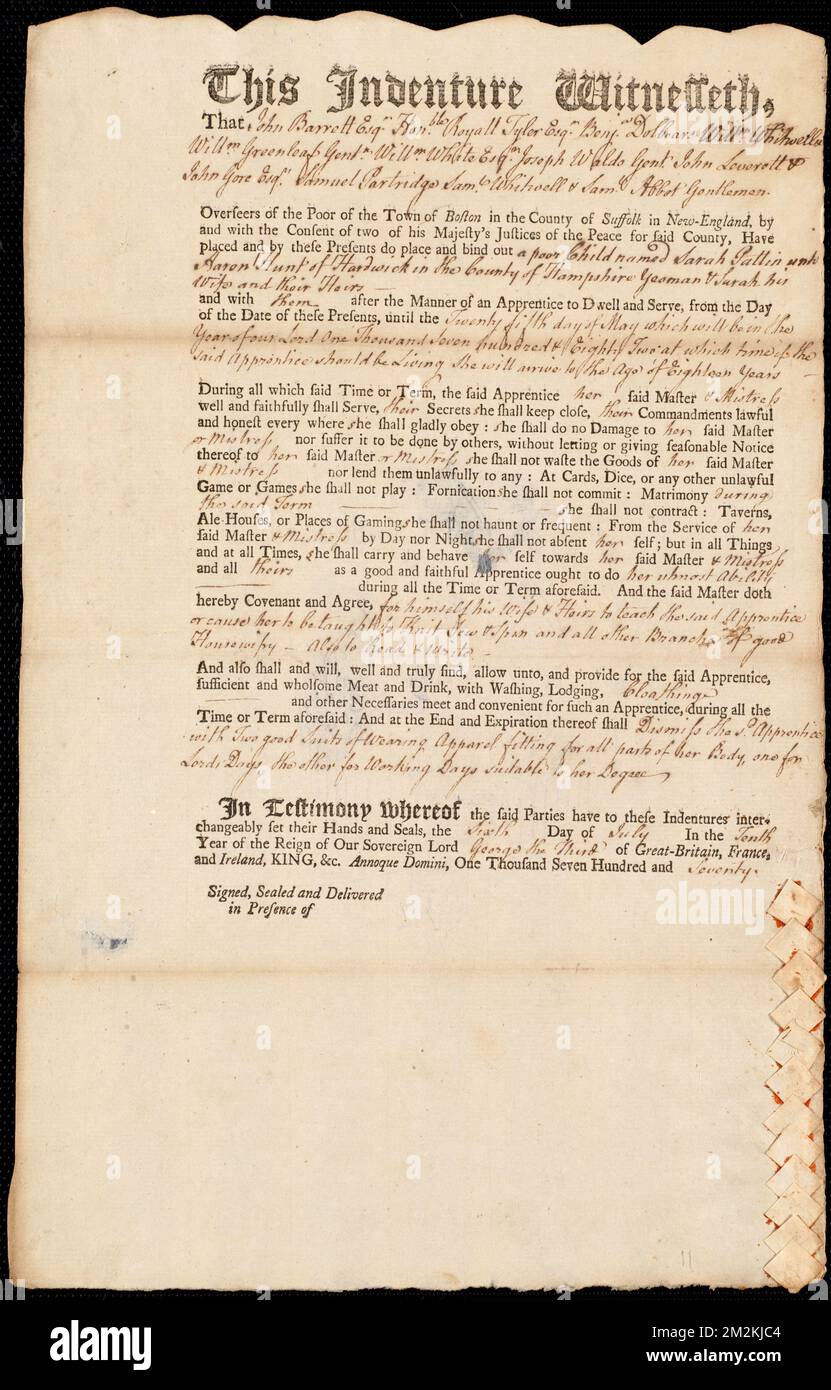 This Indenture Witnesseth,
That John Barrett Esqr. Honble. Royall Tyler Esqr. Benjn. Dolbare Willm. Whitwell
Willm. Greenleaf Gentn. Willm. White Esqr. Joseph Waldo Gent John Leverett &
John Gore Esqrs. Samuel Partridge Saml. Whitwell & Saml. Abbot Gentlemen.
Overseers of the Poor of the Town of Boston in the County of Suffolk in New-England, by
and with the Consent of two of his Majesty's Justices of the Peace for said County, Have
placed and by these Presents do place and bind out a poor Child named Sarah Pattin unto
Aaron Hunt of Hardwick in the County of Hampshire Yeoman & Sarah his
Wife and their Heirs
and with them after the Manner of an Apprentice to Dwell and Serve, from the Day
of the Date of these Presents, until the Twenty fifth day of May which will be in the
Year of our Lord One Thousand Seven hundred & Eighty Two at which time if the
said Apprentice should be Living She will arrive to the Age of Eighteen Years
During all which said Time or Term, the said Apprentice her said Master & Mistress
well and faithfully shall Serve, their Secrets she shall keep close, their Commandments lawful
and honest every where she shall gladly obey : she shall do no Damage to her said Master
or Mistress nor suffer it to be done by others, without letting or giving seasonable Notice
thereof to her said Master or Mistress she shall not waste the Goods of her said Master
& Mistress nor lend them unlawfully to any : At Cards, Dice, or any other unlawful
Game or Games she shall not play : Fornication she shall not commit : Matrimony during
the said Term she shall not contract : Taverns,
Ale-Houses, or Places of Gaming she shall not haunt or frequent : From the Service of her
said Master & Mistress by Day nor Night she shall not absent her self; but in all Things
and at all Times, she shall carry and behave her self towards her said Master & Mistress
and all theirs as a good and faithful Apprentice ought to do her utmost Ability
during all the Time or Term aforesaid. And the said Master doth
hereby Covenant and Agree, for himself his Wife & Heirs to teach the said Apprentice
or cause her to be taught to Knit Sew & Spin and all other Branches of good
Housewifry — Also to Read & Write
And also shall and will, well and truly find, allow unto, and provide for the said Apprentice,
sufficient and wholsome Meat and Drink, with Washing, Lodging, Cloathing
and other Necessaries meet and convenient for such an Apprentice, during all the
Time or Term aforesaid : And at the End and Expiration thereof shall Dismiss the sd. Apprentice
with Two good Suits of Wearing Apparel fitting for all parts of her Body, one for
Lords Days, the other for Working Days suitable to her Degree
In Testimony whereof the said Parties have to these Indentures inter-
changeably set their Hands and Seals, the Sixth Day of July In the Tenth
Year of the Reign of Our Sovereign Lord George the Third of Great-Britain, France,
and Ireland, KING, &c. Annoque Domini, One Thousand Seven Hundred and Seventy.
Signed, Sealed and Delivered
in Presence of
alamy
Image ID: 2M2KJC4
www.alamy.com